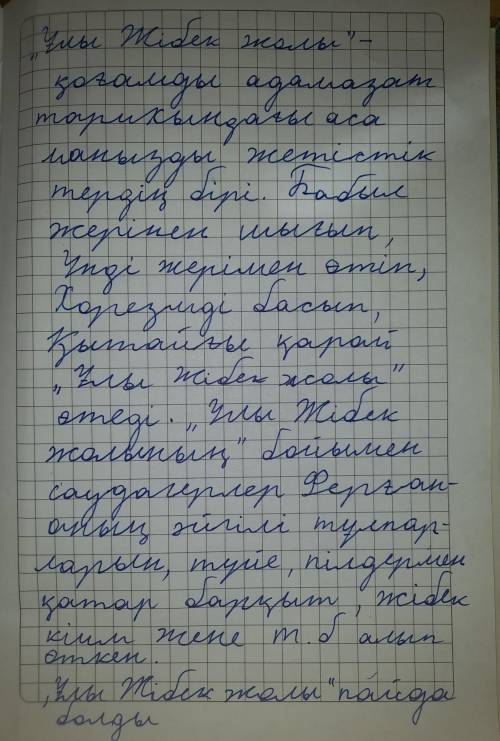 „Ұлы Жібек жолы"-
қоғамды адамазат
тарихындағы аса
маңызды жетістік
тердің бірі. Бабыл
жерінен шығып,
Үнді жерімен өтіп,
Хорезмді басып,
Қытайғы қарай
„Ұлы Жібек жолы"
өтеді. „Ұлы Жібек
жолының" бойымен
саудагерлер Ферған-
аның әйгілі тұлпар-
ларын, түйе, пілдермен
қатар барқыт, жібек
кіим жене т.б алып
өткен.
„Ұлы Жібек жолы" пайда
болды